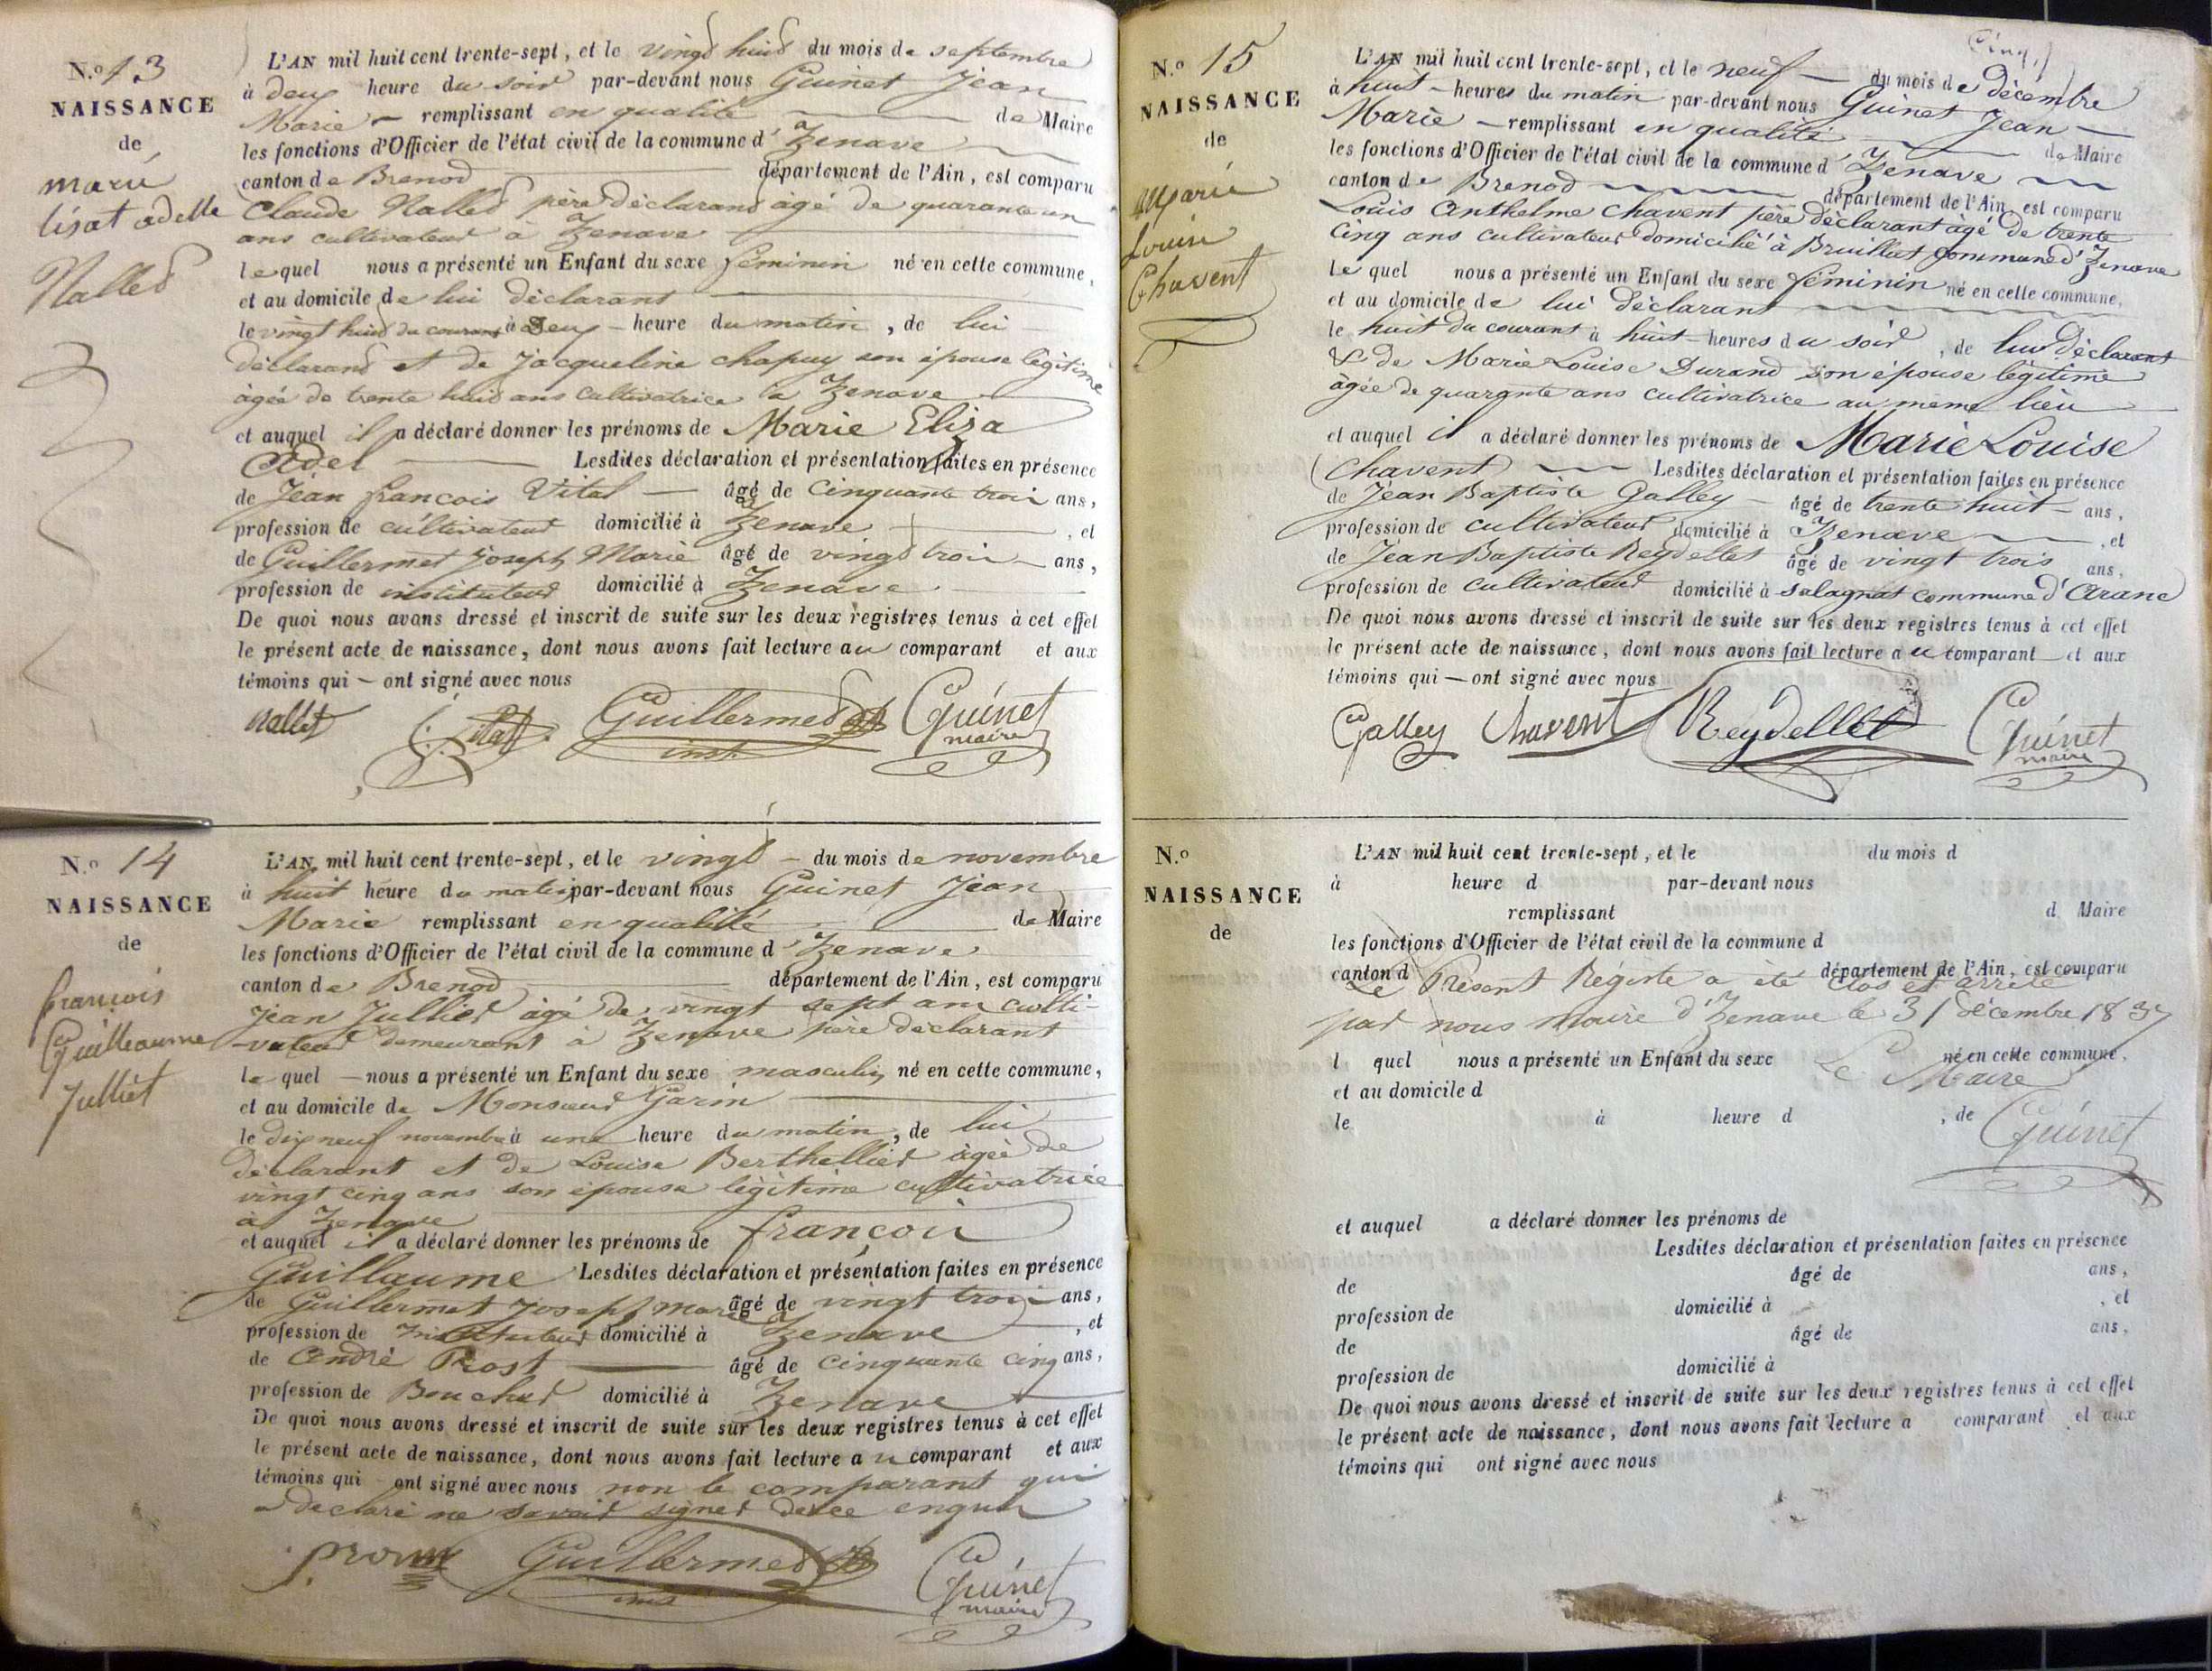 N.º 13
NAISSANCE
de
marie
lisat adelle
Nallet
L'AN mil huit cent trente-sept, et le vingt huit du mois de septembre
à deux heure du soir par-devant nous Guinet Jean
Marie — remplissant en qualité de Maire
les fonctions d'Officier de l'état civil de la commune d'Izenave
canton de Brenod département de l'Ain, est comparu
Claude Nallet père déclarant âgé de quarante un
ans cultivateur a Izenave
lequel nous a présenté un Enfant du sexe féminin né en cette commune,
et au domicile de lui déclarant
le vingt huit du courant à deux heure du matin, de lui
déclarant et de Jacqueline chapuy son épouse légitime
âgée de trente huit ans cultivatrice a Izenave
et auquel il a déclaré donner les prénoms de Marie Eliza
Adel Lesdites déclaration et présentation faites en présence
de Jean françois Vital âgé de cinquante trois ans,
profession de cultivateur domicilié à Izenave, et
de Guillermet Joseph Marie âgé de vingt trois ans,
profession de instituteur domicilié à Izenave
De quoi nous avons dressé et inscrit de suite sur les deux registres tenus à cet effet
le présent acte de naissance, dont nous avons fait lecture au comparant et aux
témoins qui — ont signé avec nous
Nallet Vital Guillermet Guinet
inst. maire
N.º 14
NAISSANCE
de
françois
Guilleaume
Julliet
L'AN mil huit cent trente-sept, et le vingt du mois de novembre
à huit heure du matin par-devant nous Guinet Jean
Marie remplissant en qualité de Maire
les fonctions d'Officier de l'état civil de la commune d'Izenave
canton de Brenod département de l'Ain, est comparu
Jean Julliet âgé de vingt sept ans culti-
-vateur demeurant à Izenave père déclarant
lequel nous a présenté un Enfant du sexe masculin né en cette commune,
et au domicile de Monsieur Garin
le dix neuf novembre à une heure du matin, de lui
déclarant et de Louise Berthelliet âgée de
vingt cinq ans son épouse légitime cultivatrice
à Izenave
et auquel il a déclaré donner les prénoms de françois
Guillaume Lesdites déclaration et présentation faites en présence
de Guillermet Joseph marie âgé de vingt trois ans,
profession de instituteur domicilié à Izenave, et
de André Prost âgé de cinquante cinq ans,
profession de Boucher domicilié à Izenave
De quoi nous avons dressé et inscrit de suite sur les deux registres tenus à cet effet
le présent acte de naissance, dont nous avons fait lecture au comparant et aux
témoins qui ont signé avec nous non le comparant qui
a declaré ne savoir signer de ce enquis
Guillermet Guinet
inst maire
N.º 15
NAISSANCE
de
Marie
Louise
Chavent
L'AN mil huit cent trente-sept, et le neuf — du mois de décembre
à huit — heures du matin par-devant nous Guinet Jean —
Marie — remplissant en qualité de Maire
les fonctions d'Officier de l'état civil de la commune d'Izenave
canton de Brenod département de l'Ain, est comparu
Louis Anthelme Chavent père déclarant âgé de trente
cinq ans cultivateur domicilié à Bruillat commune d'Izenave
lequel nous a présenté un Enfant du sexe féminin né en cette commune,
et au domicile de lui déclarant
le huit du courant à huit heures du soir, de lui déclarant
& de Marie Louise Durand son épouse légitime
âgée de quarante ans cultivatrice au même lieu
et auquel il a déclaré donner les prénoms de Marie Louise
Chavent Lesdites déclaration et présentation faites en présence
de Jean Baptiste Galley âgé de trente huit ans,
profession de cultivateur domicilié à Izenave, et
de Jean Baptiste Reydellet âgé de vingt trois ans,
profession de cultivateur domicilié à salagnat commune d'Aranc
De quoi nous avons dressé et inscrit de suite sur les deux registres tenus à cet effet
le présent acte de naissance, dont nous avons fait lecture au comparant et aux
témoins qui — ont signé avec nous
Galley Chavent Reydellet Guinet
maire
N.º
NAISSANCE
de
L'AN mil huit cent trente-sept, et le du mois d
à heure d par-devant nous
remplissant d Maire
les fonctions d'Officier de l'état civil de la commune d
canton d département de l'Ain, est comparu
Le Présent Régistre a été clos et arrêté
par nous maire d'Izenave le 31 décembre 1837
l quel nous a présenté un Enfant du sexe né en cette commune,
Le Maire
et au domicile d
le à heure d , de
Guinet
et auquel a déclaré donner les prénoms de
Lesdites déclaration et présentation faites en présence
de âgé de ans,
profession de domicilié à , et
de âgé de ans,
profession de domicilié à
De quoi nous avons dressé et inscrit de suite sur les deux registres tenus à cet effet
le présent acte de naissance, dont nous avons fait lecture a comparant et aux
témoins qui ont signé avec nous